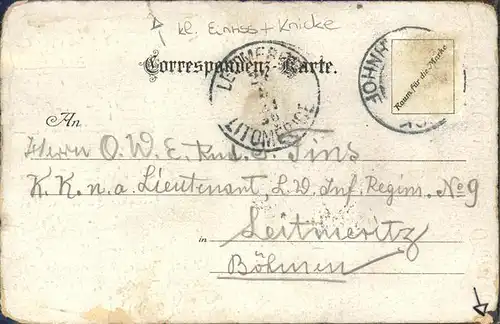 kl. Einriss + Knicke
Correspondenz-Karte.
LITOMĚŘICE
Raum für die Marke
An
Herrn O. W. E.
K. K. n. a. Lieutenant L. W. Inf. Regim. No 9
in Leitmeritz
Böhmen